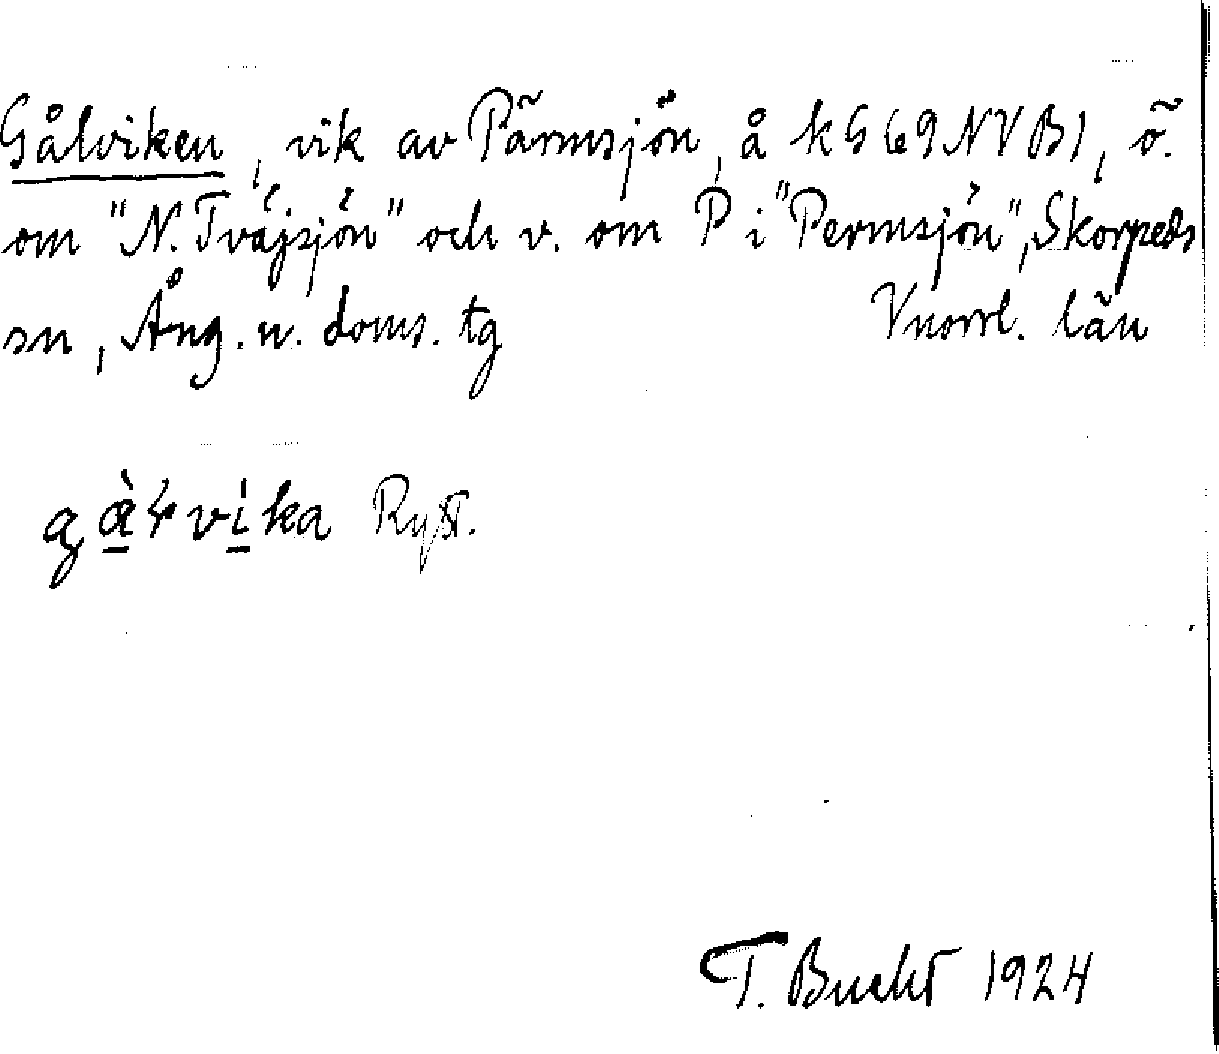 Gålviken, vik av Pärmsjön, å kG 69 NV B1, ö.
om "N. Tväjsjön" och v. om P i "Permsjön", Skorpeds
sn, Ång. n. doms. tg Vnorrl. län
T. Bucht 1924